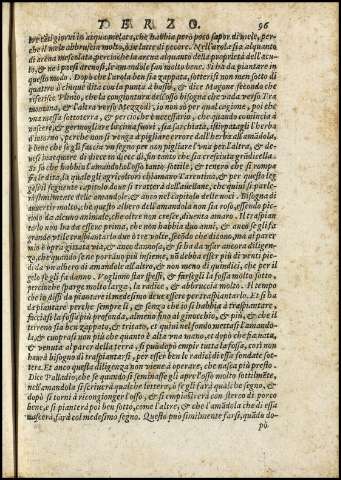 TERZO. 96
bre tai giorni in acqua melata, che habbia però poco sapor di mele, per-
che il mele abbruscia molto, ò in latte di pecore. Nell'urola sia alquanto
di arena mescolata, percioche la arena alquanto della proprietà dell'acu-
to, & ne i paesi arenosi, le amandole fan molto bene. Si ha da piantare in
questo modo. Dopò che l'urola ben sia zappata, sotterrisi non men sotto di
quattro ò cinque dita con la punta à basso, & dice Magone secondo che
riferisce Plinio, che la congiontura dell'osso bisogna che vada verso Tra
montana, & l'altra verso Mezzodì, io non sò per qual cagione, poi che
vna messa sottoterra, & percio che è necessario, che quando comincia à
nascere, & germogliare lo cima fuori, sia sarchiata, & strappatagli l'herba
d'intorno, perche non si venga à pigliare errore dall'herba all'amandola,
è bene che segli faccia vn segno per non pigliare l'vna per l'altra, & de-
uesi inacquare di diece in diece dì, fin tanto che sia cresciuta grādicella.
Se si fa che habbia l'amandola l'osso tanto sottile, & tenera che si rompa
fra le dita, la quale gli agricoltori chiamano Tarentino, & per questo leg
gasi il seguente capitolo doue si tratterà dell'auellane, che quiui si parle-
rà similmente delle amandole, & anco nel capitolo delle noci. Bisogna di
auuertir molto, che questo albero dell'amandola non sia roso, essendo pic
ciolo da alcuno animale, che oltre non crescer, diuenta amaro. Il traspian
tarlo non ha da essere prima, che non habbia dui anni, & anco se gli fa
grande vtile traspiantarlo due ò tre volte, secōdo che dicono, ma al parer
mio è opra gittata via, & anco dannosa, & si ha da vsar ancora diligen-
za, che quando se ne portano più insieme, nō debba esser più di venti pie-
di da vn'albero di amandole all'altro, & non meno di quindici, che per il
gelo se gli fa danno. Vogliono star spessi, & facciasi gli la fossa molto sotto,
percioche sparge molto larga, la radice, & abbruccia molto. Il tempo
che io dissi da piantare il medesimo deue essere per traspiantarlo. Et si ha
da piantare perche sempre li, & senza che io si habbia à traspiantare,
facciasi la fossa più profonda, almeno fino al ginocchio, & più, & che il
terreno sia ben zappato, & tritato, et quiui nel fondo mettasi l'amando-
la, & cuoprasi non più che quanto è alta vna mano, et dopò che sia nata,
& venuta al parer della terra, si può dopò empir tutta la fossa, così non
haurà bisogno di traspiantarsi, per esser ben le radici di essa fondate sot-
terra. Et anco questa diligenza non viene à operare, che nasca più presto.
Dice Palladio, che se quando si seminasse gli apre l'osso molto sottilmēte,
nell'amandola si scriuerà qualche lettera, ò se gli farà qualche segno, &
dopò si torni à ricongionger l'osso, & si empiastrerà con sterco di porco
bene, & si pianterà poi ben sotto, come l'altre, & che l'amādola che di essa
nascerà, farà col medesimo segno. Questo può similmente farsi, quādo do-
pò